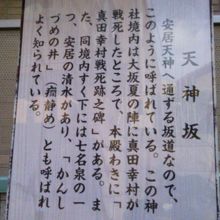 天神坂
安居天神へ通ずる坂道なので、
このように呼ばれている。この神
社境内は大坂夏の陣に真田幸村が
戦死したところで、本殿わきに「
真田幸村戦死跡之碑」がある。ま
た、同境内すぐ下には七名泉の一
つ、安居の清水があり、「かんし
づめの井」(癇静め)とも呼ばれ
よく知られている。